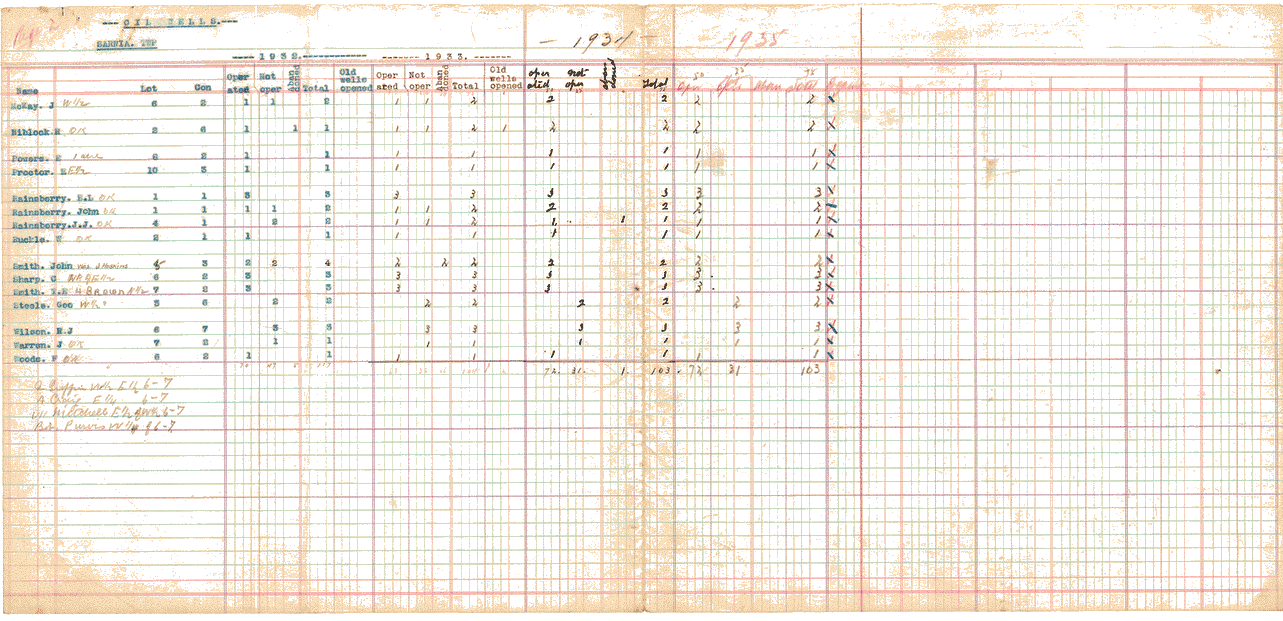 --- OIL WELLS.---
SARNIA. TWP
---- 1932.------------ ------- 1933. ------- - 1934 - 1935
Name Lot Con Oper ated Not oper Aban doned Total Old wells opened Oper ated Not oper Aban doned Total Old wells opened oper ated not oper Total
McKay. J W½ 6 2 1 1 2 1 1 2 2 2 2 2 x
Niblock OK 2 6 1 1 1 1 1 2 1 2 2 2 2 x
Powers. E 2 2 1 1 1 1 1 1 1 1 x
Proctor. E E½ 10 3 1 1 1 1 1 1 1 1 x
Rainsberry. E.L OK 1 1 3 3 3 3 3 3 3 3 x
Rainsberry. John OK 1 1 1 1 2 1 1 2 2 2 2 2 x
Rainsberry.J.J. OK 4 1 2 2 1 1 2 1 1 1 1 1 x
Ruckle. OK 2 1 1 1 1 1 1 1 1 1 x
Smith. John 5 3 2 2 4 2 2 2 2 2 2 2 x
Sharp. C 6 2 3 3 3 3 3 3 3 3 x
Smith. Brown 7 2 3 3 3 3 3 3 3 3 x
Steele. Geo W½ 3 6 2 2 2 2 2 2 2 2 x
Wilson. R.J 6 7 3 3 3 3 3 3 3 3 x
Warren. J OK 7 2 1 1 1 1 1 1 1 1 x
Woods. F OK 6 2 1 1 1 1 1 1 1 1 x
72. 31. 1. 103. 72 31 103
Griffin W½ E½ 6-7
A Craig E¼ 6-7
Mitchell E½ 6-7
Purvis W¼ 6-7